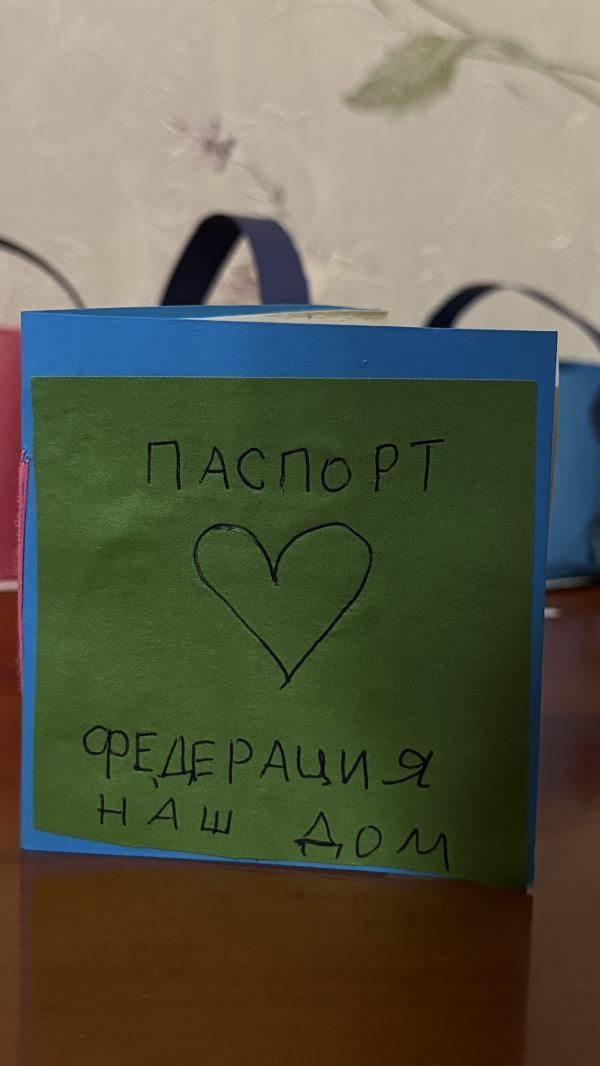 ПАСПОРТ
ФЕДЕРАЦИЯ
НАШ ДОМ